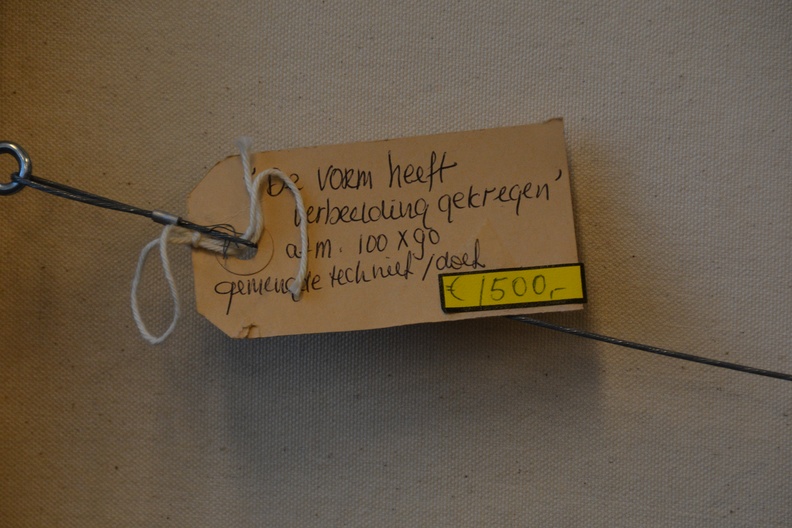 'De vorm heeft
verbeelding gekregen'
a.m. 100 x 90
gemengde techniek/doek
€ 1500,-